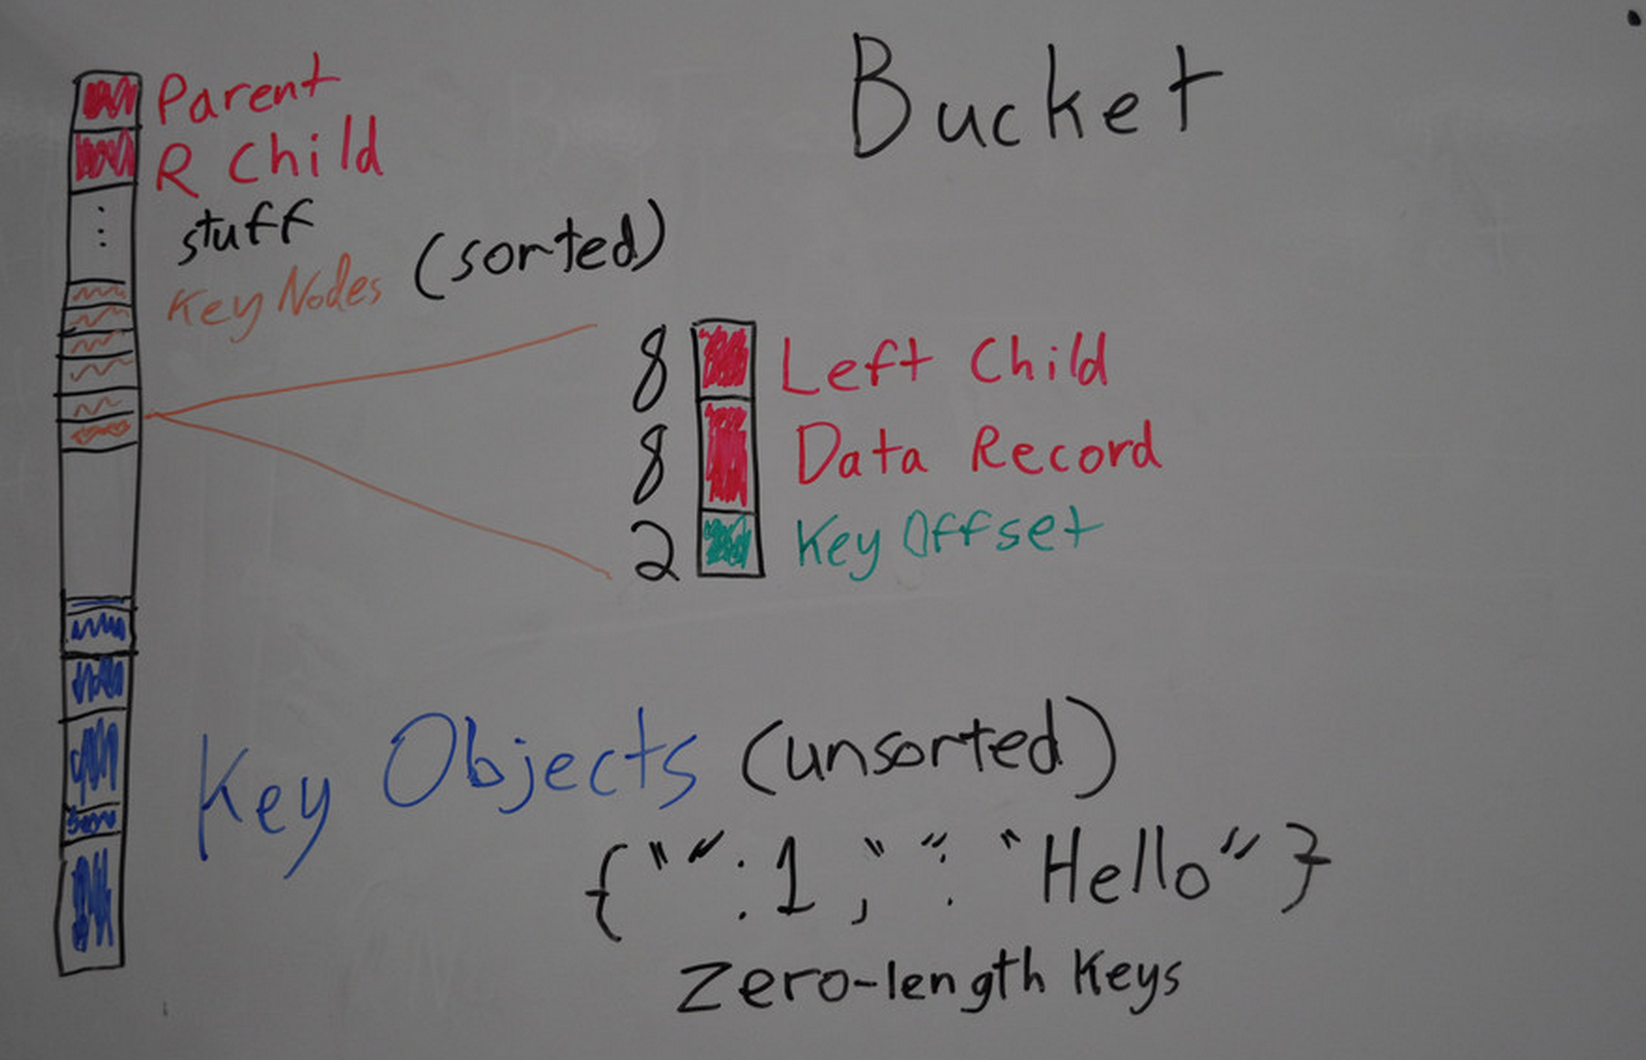 Bucket
Parent
R Child
stuff
Key Nodes (sorted)
8 Left Child
8 Data Record
2 Key Offset
Key Objects (unsorted)
{"" : 1, "" : "Hello"}
Zero-length Keys